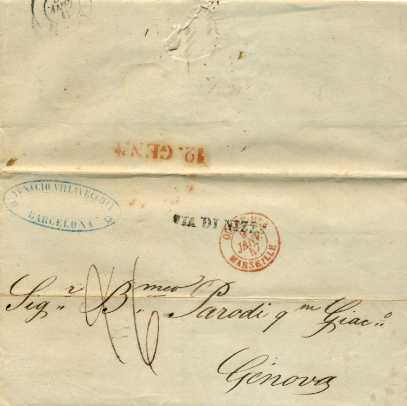 12. GEN.º
IGNACIO VILLAVECCHIA
BARCELONA
VIA DI NIZZA
JANV.
47
MARSEILLE
26
Sig.r B.meo Parodi q.m Giac.o
Génova